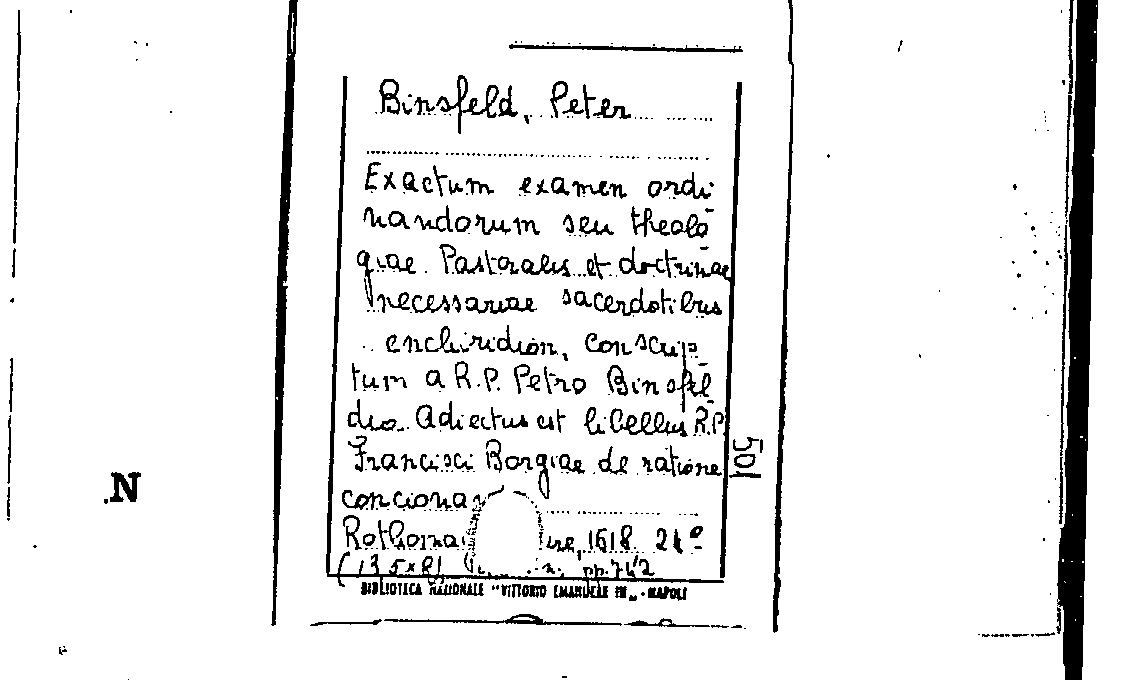 Binsfeld, Peter
Exactum examen ordi
nandorum seu theolo
giae Pastoralis et doctrinae
necessariae sacerdotibus
enchiridion, conscrip
tum a R.P. Petro Binsfel
dio. Adiectus est libellus R.P.
Francisci Borgiae de ratione
501
.N
1618. 24°
(13,5x8) pp.742
BIBLIOTECA NAZIONALE "VITTORIO EMANUELE III" - NAPOLI